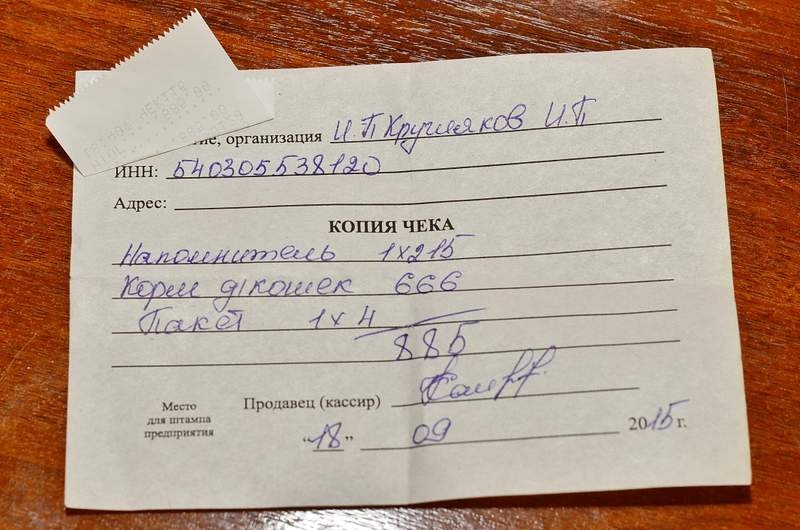 ие, организация И.П Кругляков И.П
ИНН: 540305538120
Адрес:
КОПИЯ ЧЕКА
Наполнитель 1х215
Корм д/кошек 666
Пакет 1х4
885
Место
для штампа
предприятия
Продавец (кассир)
"18" 09 2015 г.